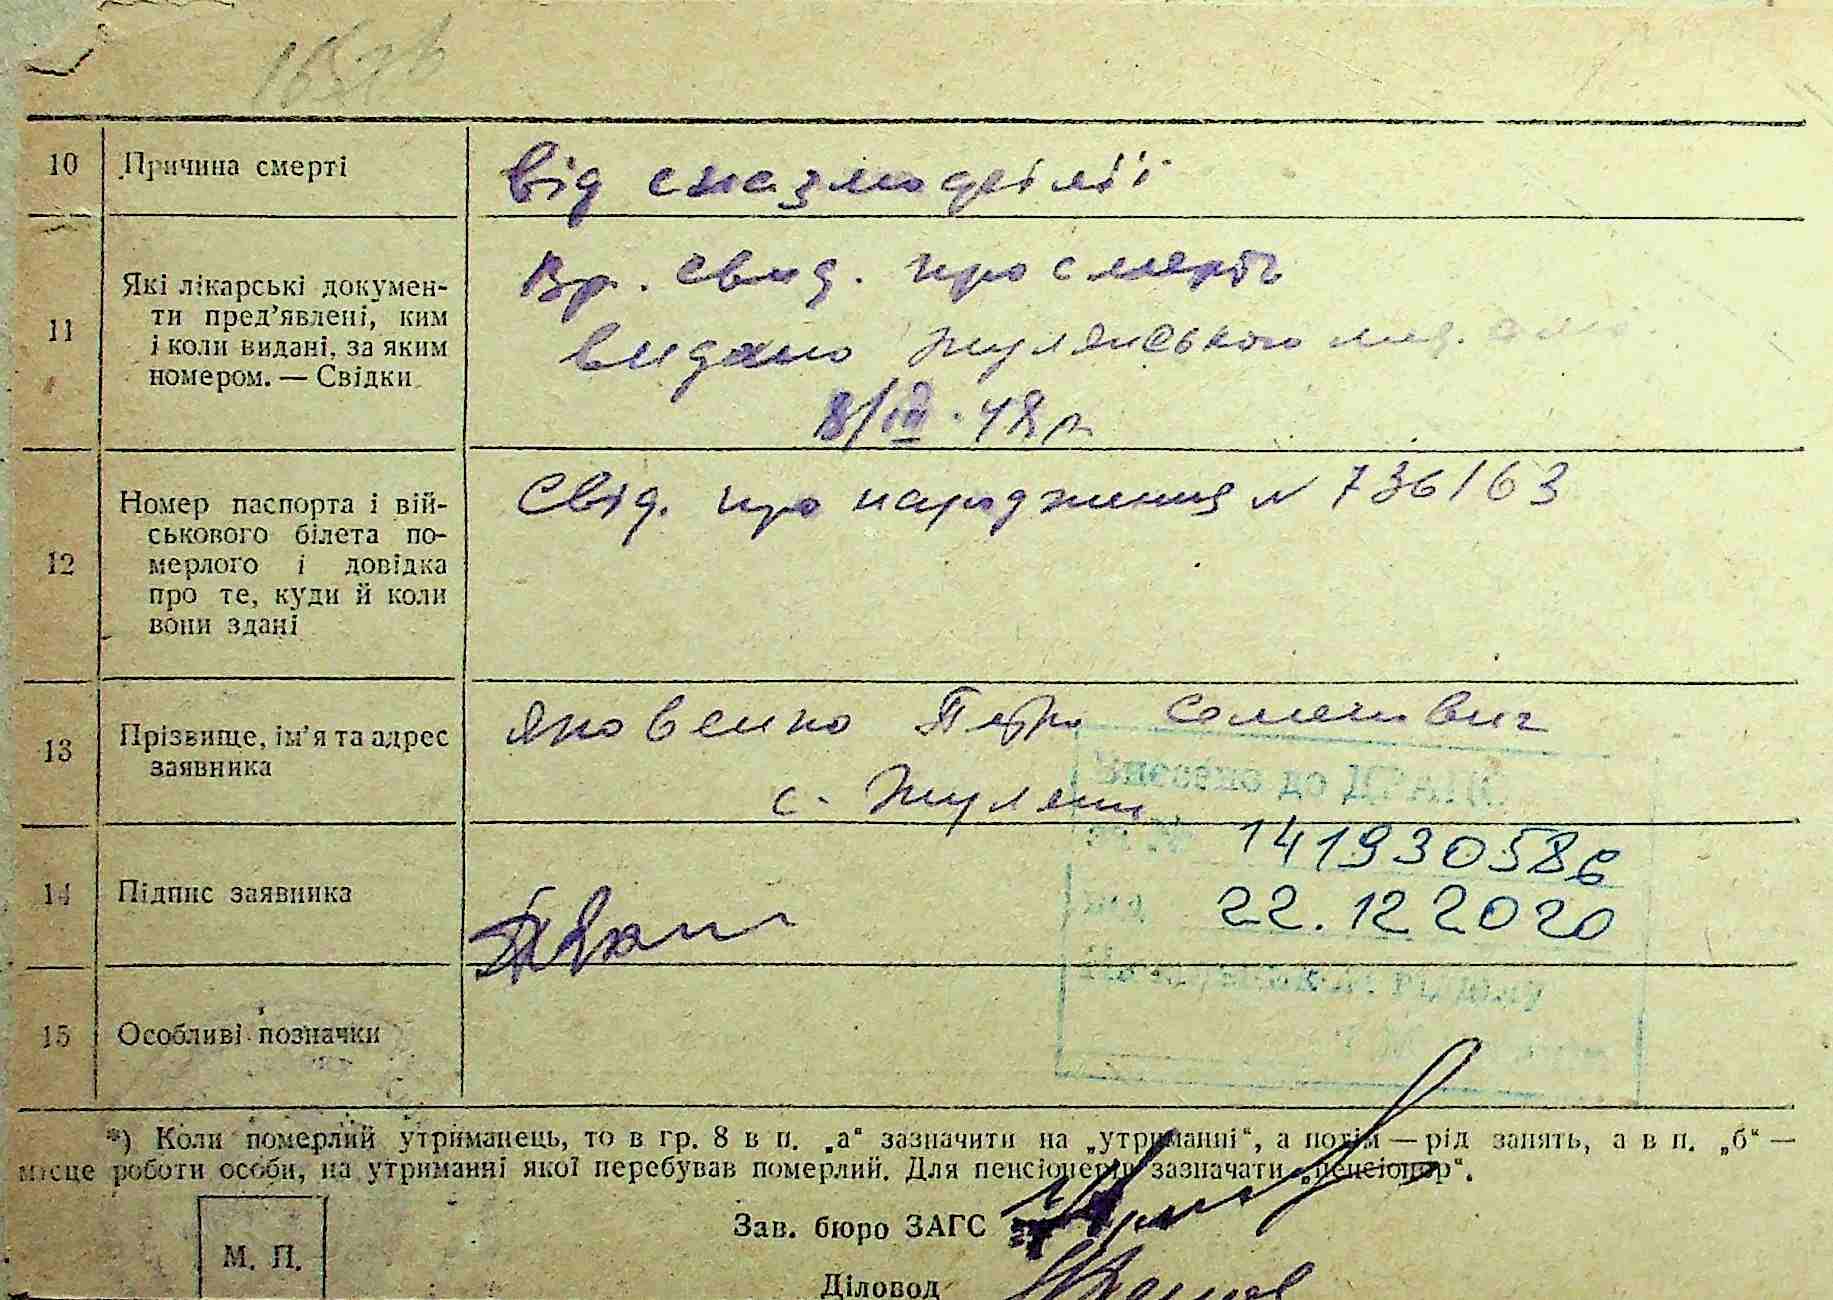 10 Причина смерті
від спазмофілії
11 Які лікарські докумен-
ти пред'явлені, ким
і коли видані, за яким
номером. — Свідки
Вр. свид. про смерть
видано Жулянського мед.
8/III. 48 р.
12 Номер паспорта і вій-
ськового білета по-
мерлого і довідка
про те, куди й коли
вони здані
Свід. про народження N 736163
13 Прізвище, ім'я та адрес
заявника
Яковенко Петро Семенович
с. Жуляни
Внесено до ДРАЦС
за № 141930586
від 22.12 2020
14 Підпис заявника
15 Особливі позначки
*) Коли померлий утриманець, то в гр. 8 в п. „а“ зазначити на „утриманні“, а потім — рід занять, а в п. „б“ —
місце роботи особи, на утриманні якої перебував померлий. Для пенсіонерів зазначати „пенсіонер“.
Зав. бюро ЗАГС
М. П.
Діловод